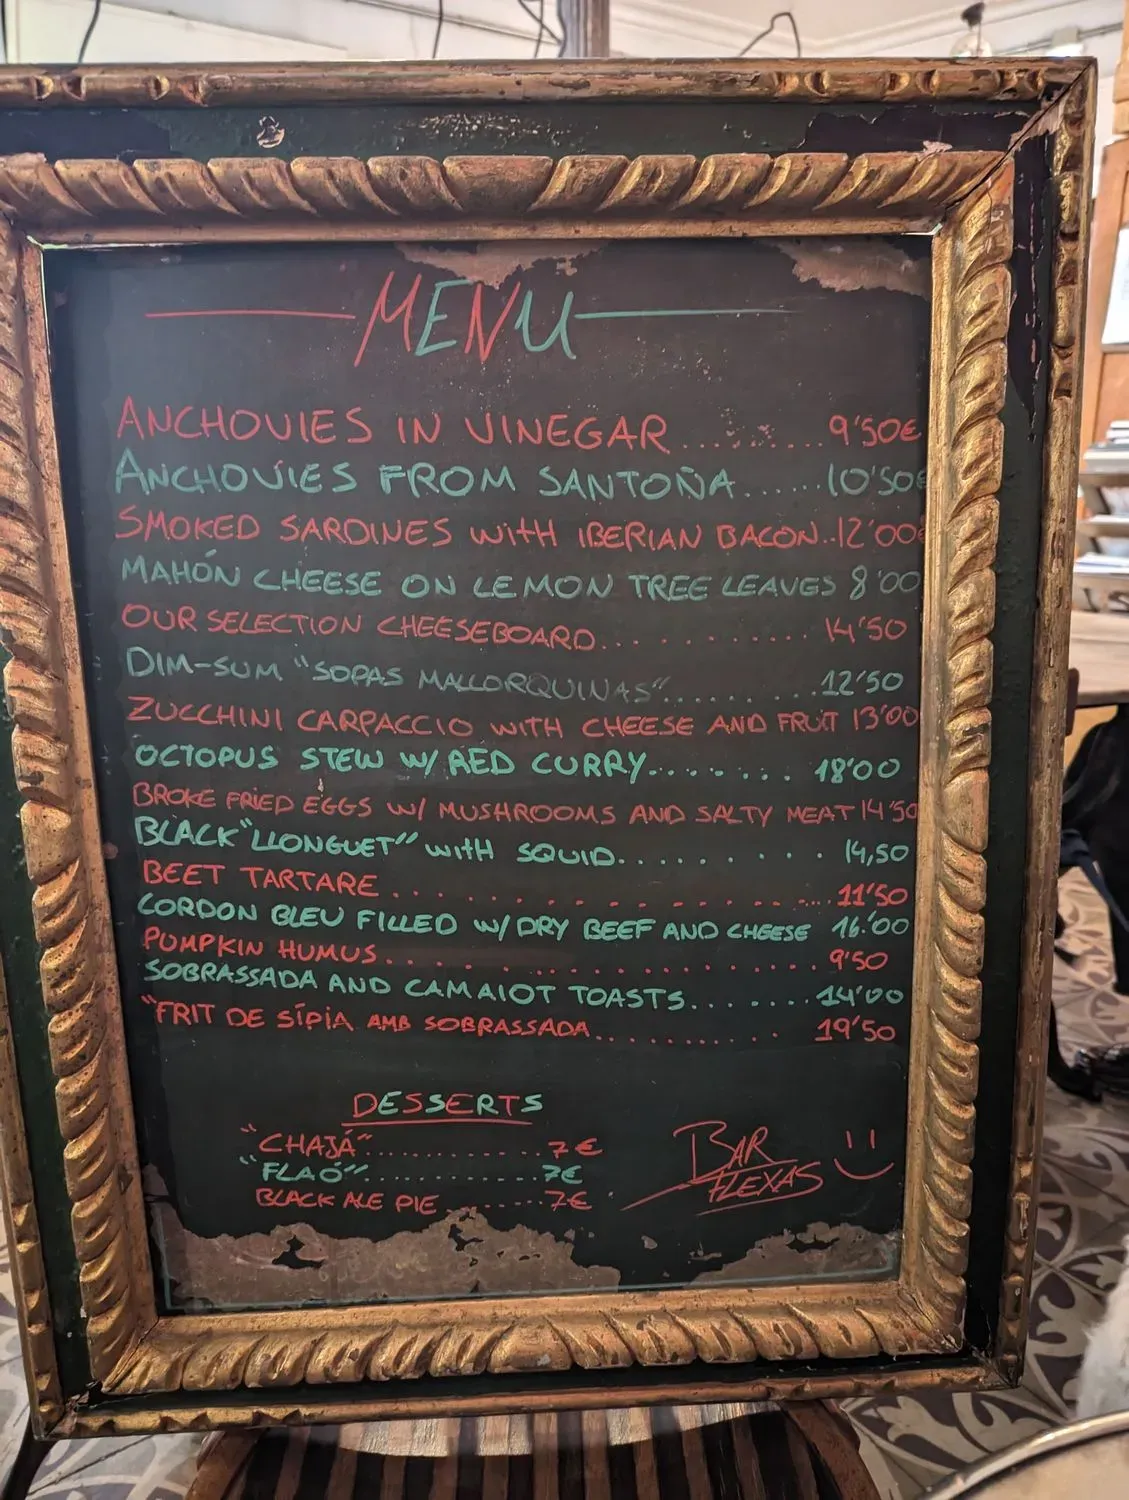 MENU
ANCHOVIES IN VINEGAR.........9'50€
ANCHOVIES FROM SANTOÑA......10'50€
SMOKED SARDINES WITH IBERIAN BACON..12'00€
MAHÓN CHEESE ON LEMON TREE LEAVES 8'00
OUR SELECTION CHEESEBOARD.......... 14'50
DIM-SUM "SOPAS MALLORQUINAS"........12'50
ZUCCHINI CARPACCIO WITH CHEESE AND FRUIT 13'00
OCTOPUS STEW W/ RED CURRY........ 18'00
BROKE FRIED EGGS W/ MUSHROOMS AND SALTY MEAT 14'50
BLACK "LLONGUET" WITH SQUID......... 14,50
BEET TARTARE................ 11'50
CORDON BLEU FILLED W/ DRY BEEF AND CHEESE 16'00
PUMPKIN HUMUS................. 9'50
SOBRASSADA AND CAMAIOT TOASTS........14'00
"FRIT DE SÍPIA AMB SOBRASSADA.......... 19'50
DESSERTS
"CHAJÁ"..............7€
"FLAÓ"..............7€
BLACK ALE PIE.......7€
BAR
FLEXAS